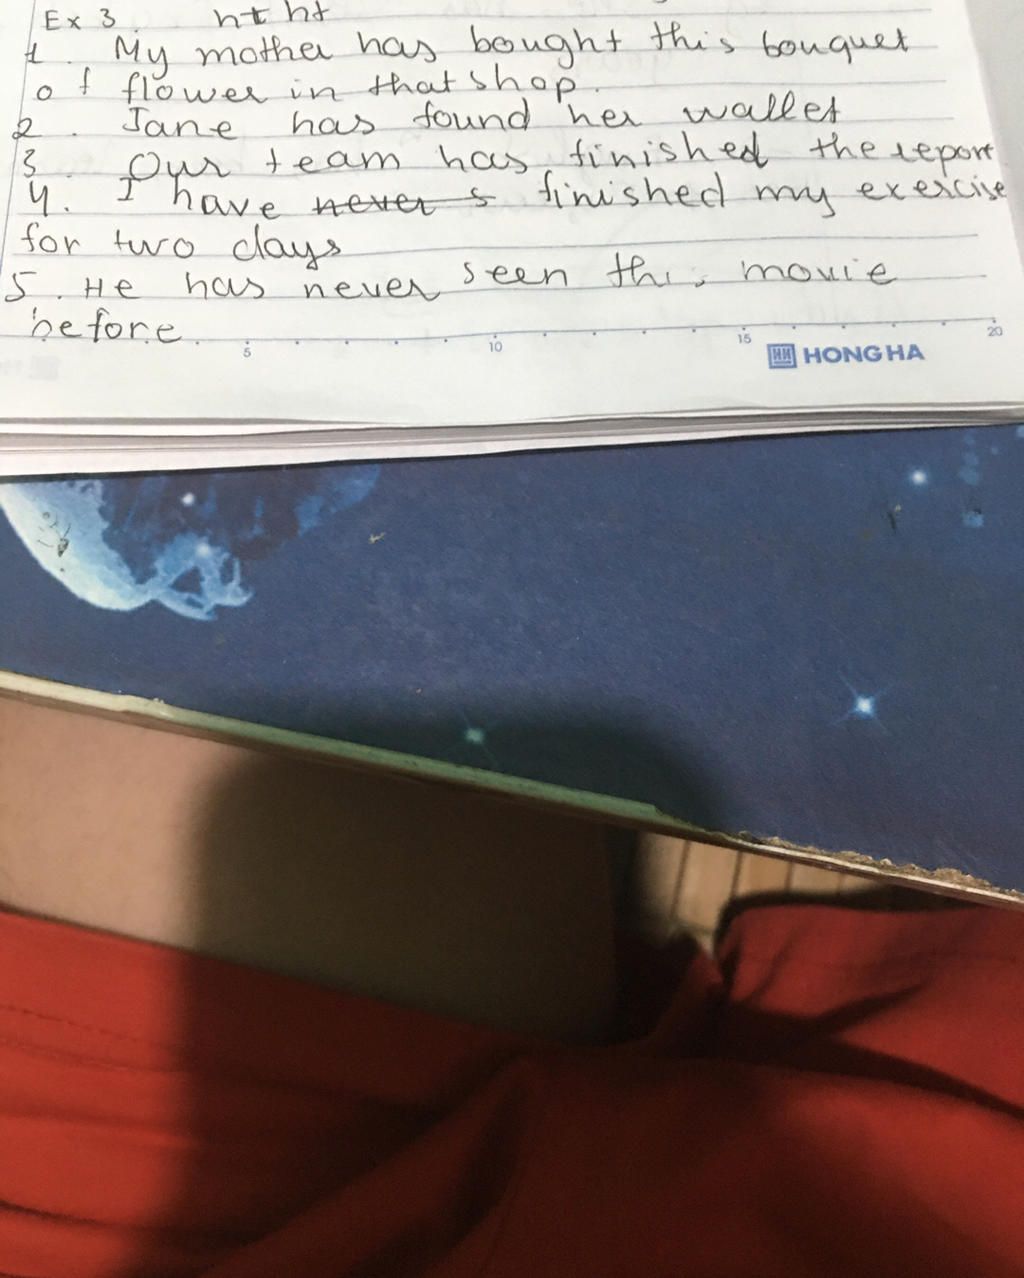 Ex 3 ht ht
1. My mother has bought this bouquet
of flower in that shop.
2. Jane has found her wallet
3. Our team has finished the report
4. I have never s finished my exercise
for two days
5. He has never seen this movie
before
5 10 15 20
HH HONG HA